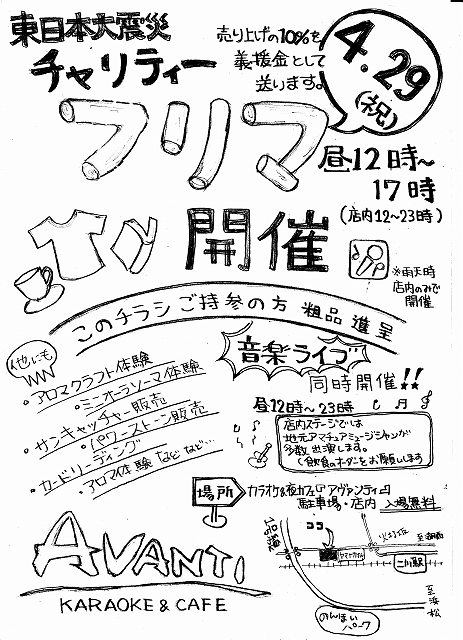 東日本大震災
チャリティー
売り上げの10%を
義援金として
送ります。
4.29
(祝)
フリマ
開催
昼12時~
17時
(店内12~23時)
※雨天時
店内のみで
開催
このチラシご持参の方 粗品進呈
他にも
・アロマクラフト体験
・ミニオーラソーマ体験
・サンキャッチャー販売
・パワーストーン販売
・カードリーディング
・アロマ体験 などなど…
音楽ライブ
同時開催!!
昼12時~23時
店内ステージでは
地元アマチュアミュージシャンが
多数出演します。
(飲食のオーダーをお願いします
場所
カラオケ&夜カフェ「アヴァンティ」
駐車場・店内 入場無料
AVANTI
KARAOKE & CAFE
ココ
1号線
ヤマナカ
火打坂
二川駅
至浜松
のんほい
パーク